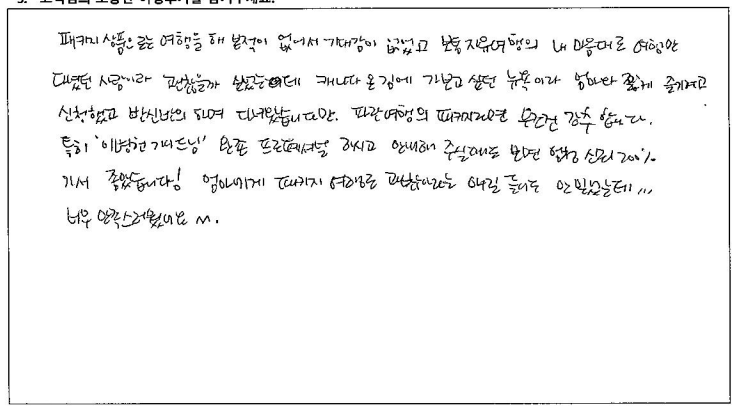 패키지 상품으로는 여행을 해 본적이 없어서 기대감이 없었고 보통 자유여행의 내 마음대로 여행만
다녔던 사람이라 괜찮을까 싶었는데 캐나다 온김에 가보고 싶던 뉴욕이라 엄마와 즐기려고
신청했고 반신반의 하며 다녀왔습니다만. 파란여행의 패키지라면 무조건 강추 합니다.
특히 '이병헌 가이드님' 완전 프로페셔널 하시고 안내해 주실때도 보면 업무 신뢰 200%
가서 좋았습니다! 엄마에게 패키지 여행도 괜찮다라는 얘길 들어도 안 믿었는데...
너무 만족스러웠어요 ^^.